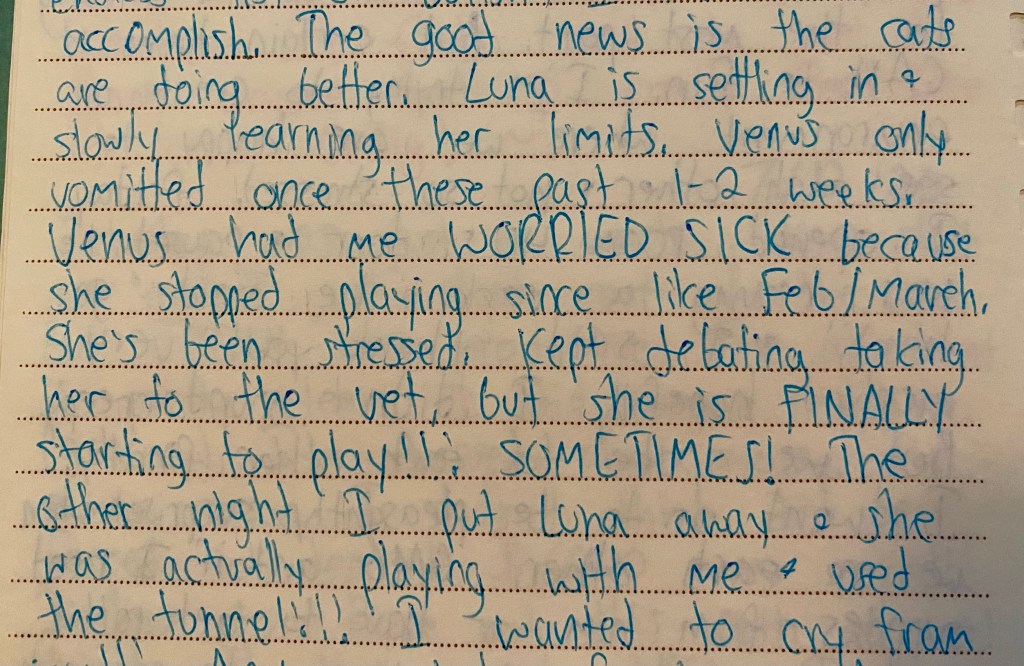 accomplish. The good news is the cats
are doing better. Luna is settling in &
slowly learning her limits. Venus only
vomitted once these past 1-2 weeks.
Venus had me WORRIED SICK because
she stopped playing since like Feb/March.
She's been stressed. Kept debating taking
her to the vet, but she is FINALLY
starting to play!!! SOMETIMES! The
other night I put Luna away & she
was actually playing with me & used
the tunnel!!! I wanted to cry from